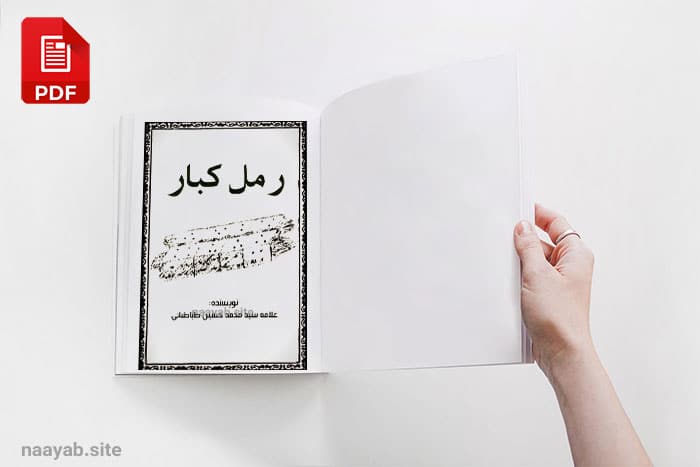 PDF
رمل کبار
نویسنده:
naayab.site
علامه سید محمد حسین طباطبائی
naayab.site